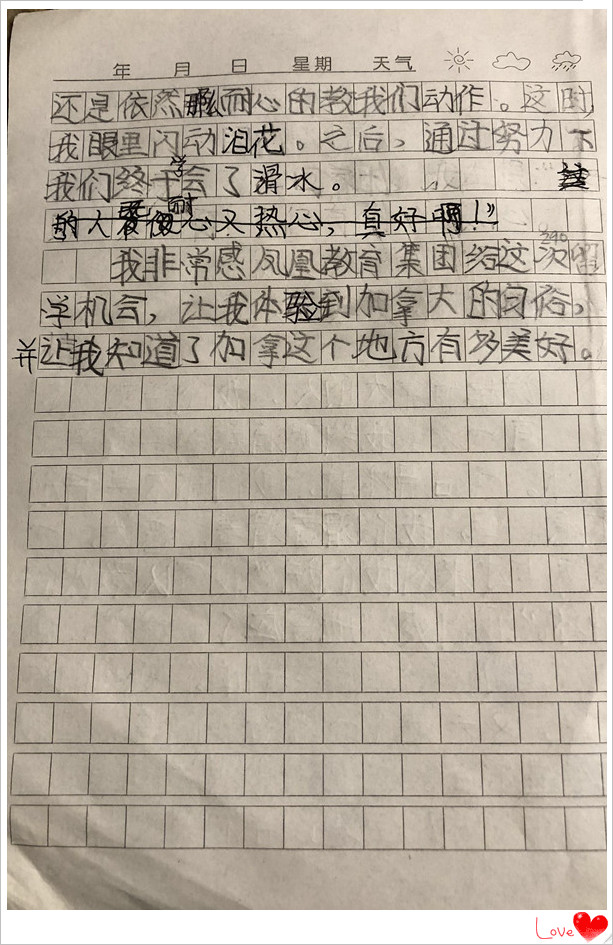 年 月 日 星期 天气
还是依然那么耐心的教我们动作。这时,
我眼里闪动泪花。之后,通过努力下
我们终于学会了滑冰。
的人耐心又热心,真好啊!”
我非常感凤凰教育集团给这次留
学机会,让我体验到加拿大的习俗,
并让我知道了加拿这个地方有多美好。
Love